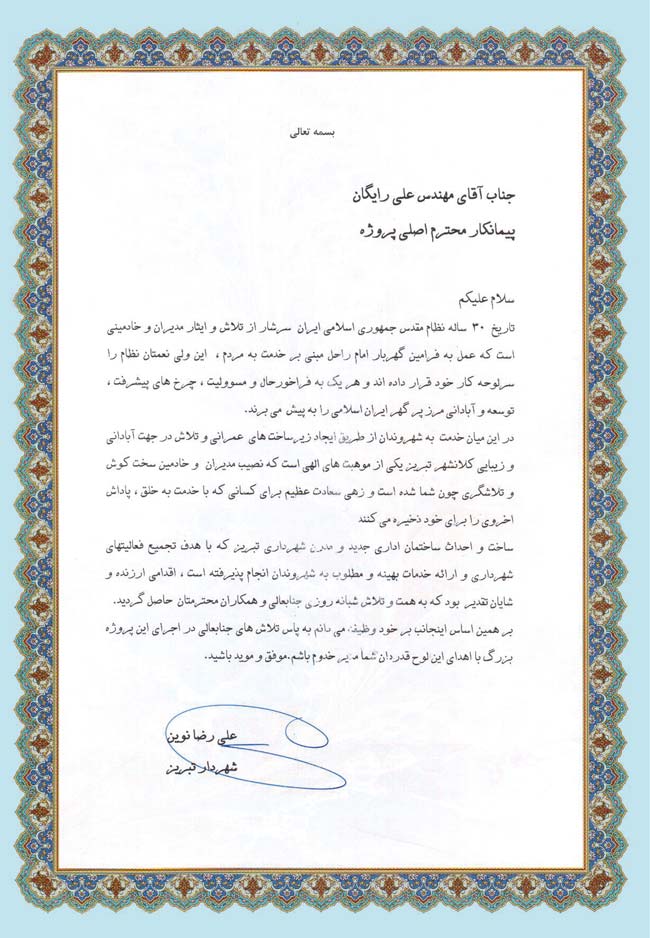 بسمه تعالی
جناب آقای مهندس علی رایگان
پیمانکار محترم اصلی پروژه
سلام علیکم
تاریخ ۳۰ ساله نظام مقدس جمهوری اسلامی ایران سرشار از تلاش و ایثار مدیران و خادمینی
است که عمل به فرامین گهربار امام راحل مبنی بر خدمت به مردم ، این ولی نعمتان نظام را
سرلوحه کار خود قرار داده اند و هر یک به فراخورحال و مسوولیت ، چرخ های پیشرفت ،
توسعه و آبادانی مرز پر گهر ایران اسلامی را به پیش می برند.
در این میان خدمت به شهروندان از طریق ایجاد زیرساخت های عمرانی و تلاش در جهت آبادانی
و زیبایی کلانشهر تبریز یکی از موهبت های الهی است که نصیب مدیران و خادمین سخت کوش
و تلاشگری چون شما شده است و زهی سعادت عظیم برای کسانی که با خدمت به خلق ، پاداش
اخروی را برای خود ذخیره می کنند
ساخت و احداث ساختمان اداری جدید و مدرن شهرداری تبریز که با هدف تجمیع فعالیتهای
شهرداری و ارائه خدمات بهینه و مطلوب به شهروندان انجام پذیرفته است ، اقدامی ارزنده و
شایان تقدیر بود که به همت و تلاش شبانه روزی جنابعالی و همکاران محترمتان حاصل گردید.
بر همین اساس اینجانب بر خود وظیفه می دانم به پاس تلاش های جنابعالی در اجرای این پروژه
بزرگ با اهدای این لوح قدردان شما مدیر خدوم باشم.موفق و موید باشید.
علی رضا نوین
شهردار تبریز